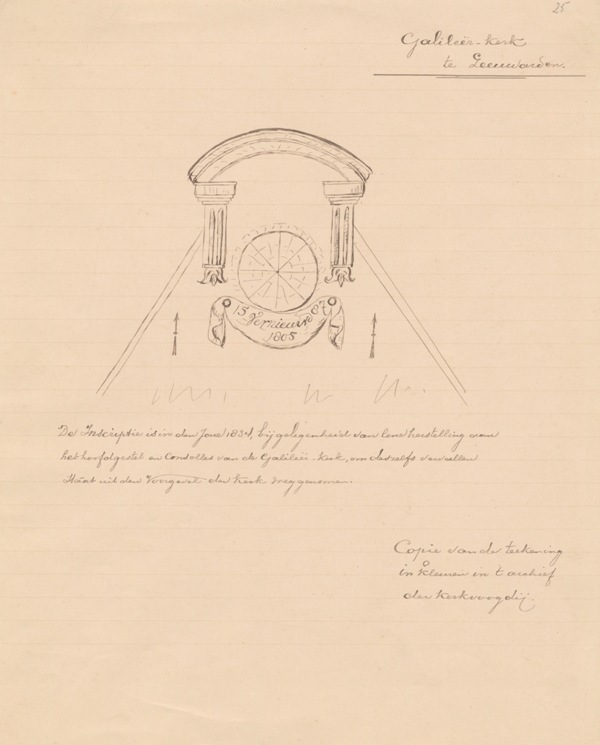 25
Galileër-kerk
te Leeuwarden.
15 Vernieuwt 87
1805
De Inscriptie is in den Jare 1834, bij gelegenheid van eene herstelling aan
het hoofdgestel en Consolles van de Galileër-kerk, om deszelfs vervallen
Staat uit den Voorgevel der kerk weggenomen.
Copie van de teekening
in kleuren in 't archief
der kerkvoogdij.